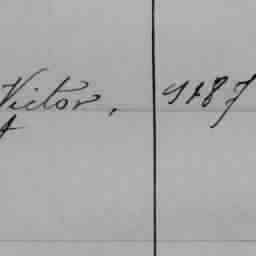 Victor, 9187